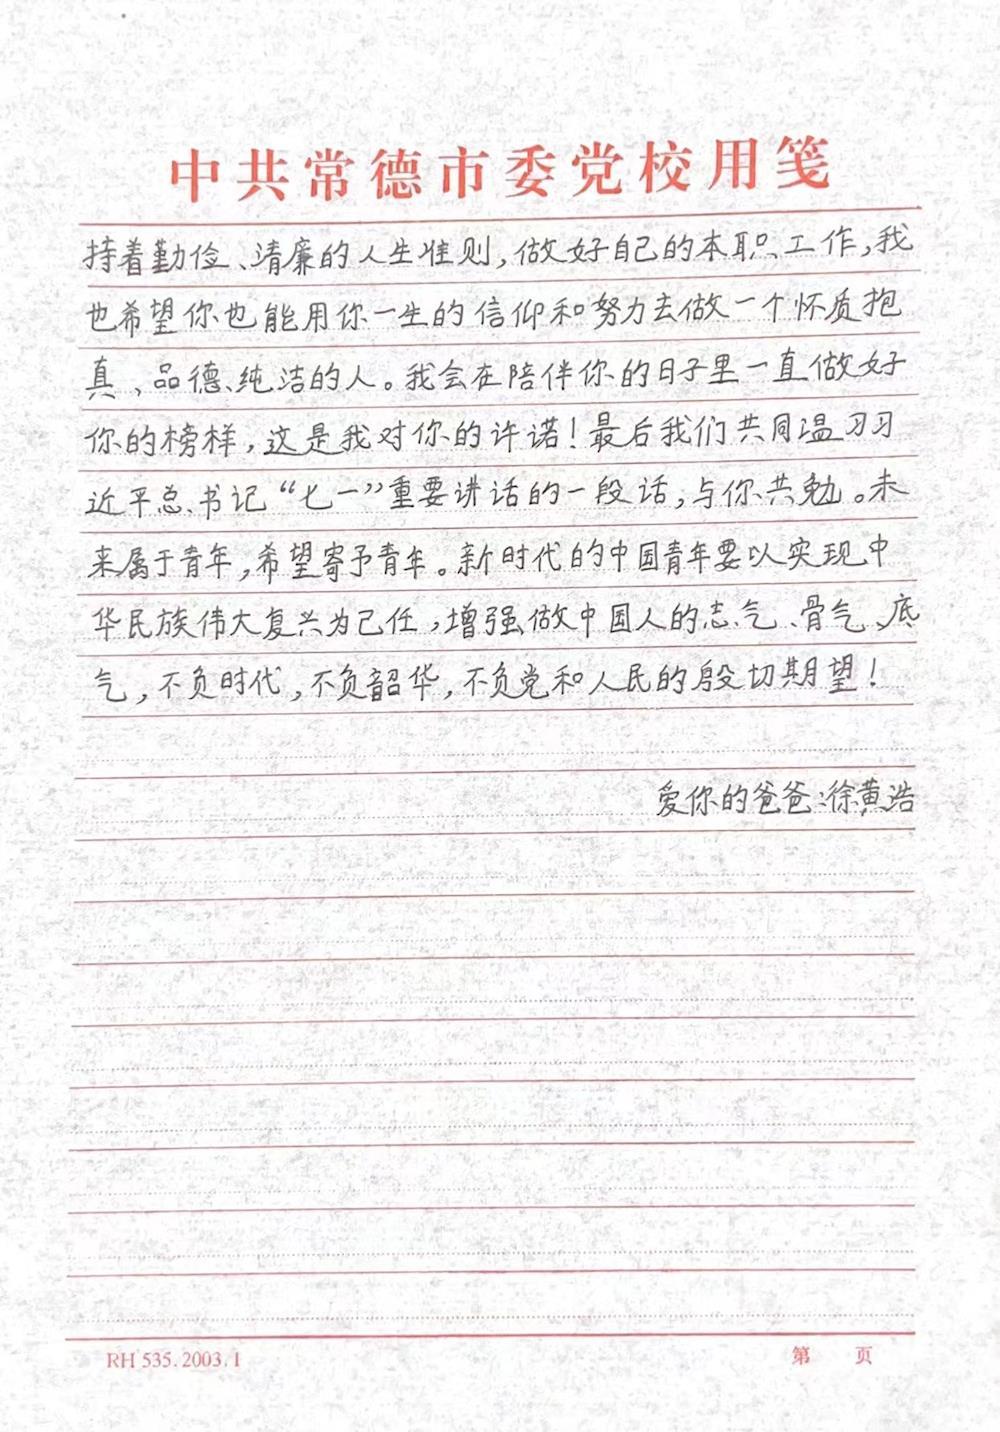 中共常德市委党校用笺
持着勤俭、清廉的人生准则,做好自己的本职工作,我
也希望你也能用你一生的信仰和努力去做一个怀质抱
真、品德纯洁的人。我会在陪伴你的日子里一直做好
你的榜样,这是我对你的许诺!最后我们共同温习习
近平总书记“七一”重要讲话的一段话,与你共勉。未
来属于青年,希望寄予青年。新时代的中国青年要以实现中
华民族伟大复兴为己任,增强做中国人的志气、骨气、底
气,不负时代,不负韶华,不负党和人民的殷切期望!
爱你的爸爸:徐黄浩
RH 535.2003.1 第 页